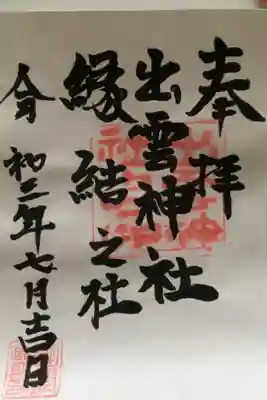 奉拝
出雲神社
縁結之社
令和二年七月吉日